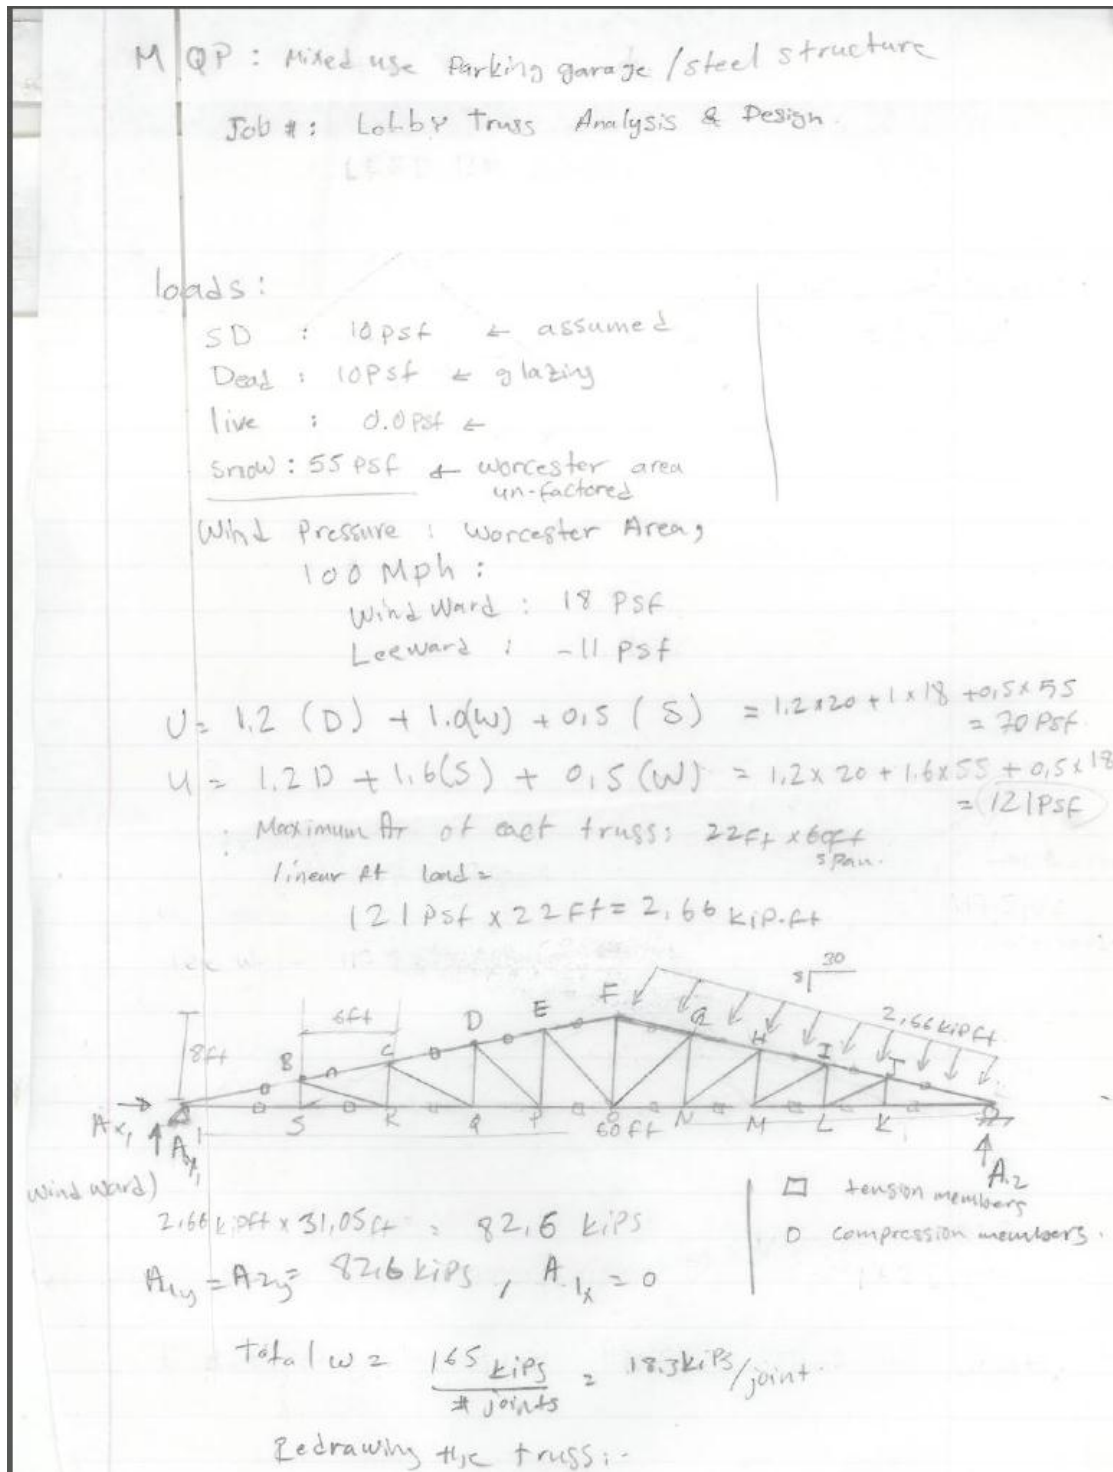 MQP : Mixed use Parking garage / steel structure
Job # : Lobby Truss Analysis & Design.
loads :
SD : 10 psf ← assumed
Dead : 10 Psf ← glazing
live : 0.0 Psf ←
snow : 55 PSf ← worcester area
un-factored
Wind Pressure : Worcester Area,
100 Mph :
Wind Ward : 18 PSF
Leeward : -11 Psf
U = 1.2 (D) + 1.0(W) + 0.5 (S) = 1.2 x 20 + 1 x 18 + 0.5 x 55
= 70 Psf.
U = 1.2 D + 1.6(S) + 0.5 (W) = 1.2 x 20 + 1.6 x 55 + 0.5 x 18
= 121 Psf
Maximum AT of each truss: 22 Ft x 60 ft
span.
linear ft load =
121 Psf x 22 FT = 2.66 kip.ft
8 30
2.66 kipft
6ft
8ft
B C D E F G H I J
S R Q P O N M L K
60 ft
Ax1
Ay1
A2
wind ward)
2.66 kipft x 31.05 ft = 82.6 kips
A1y = A2y = 82.6 kips , A1x = 0
□ tension members
O compression members.
total w = 165 kips / # joints = 18.3 kips/joint
Redrawing the truss:-